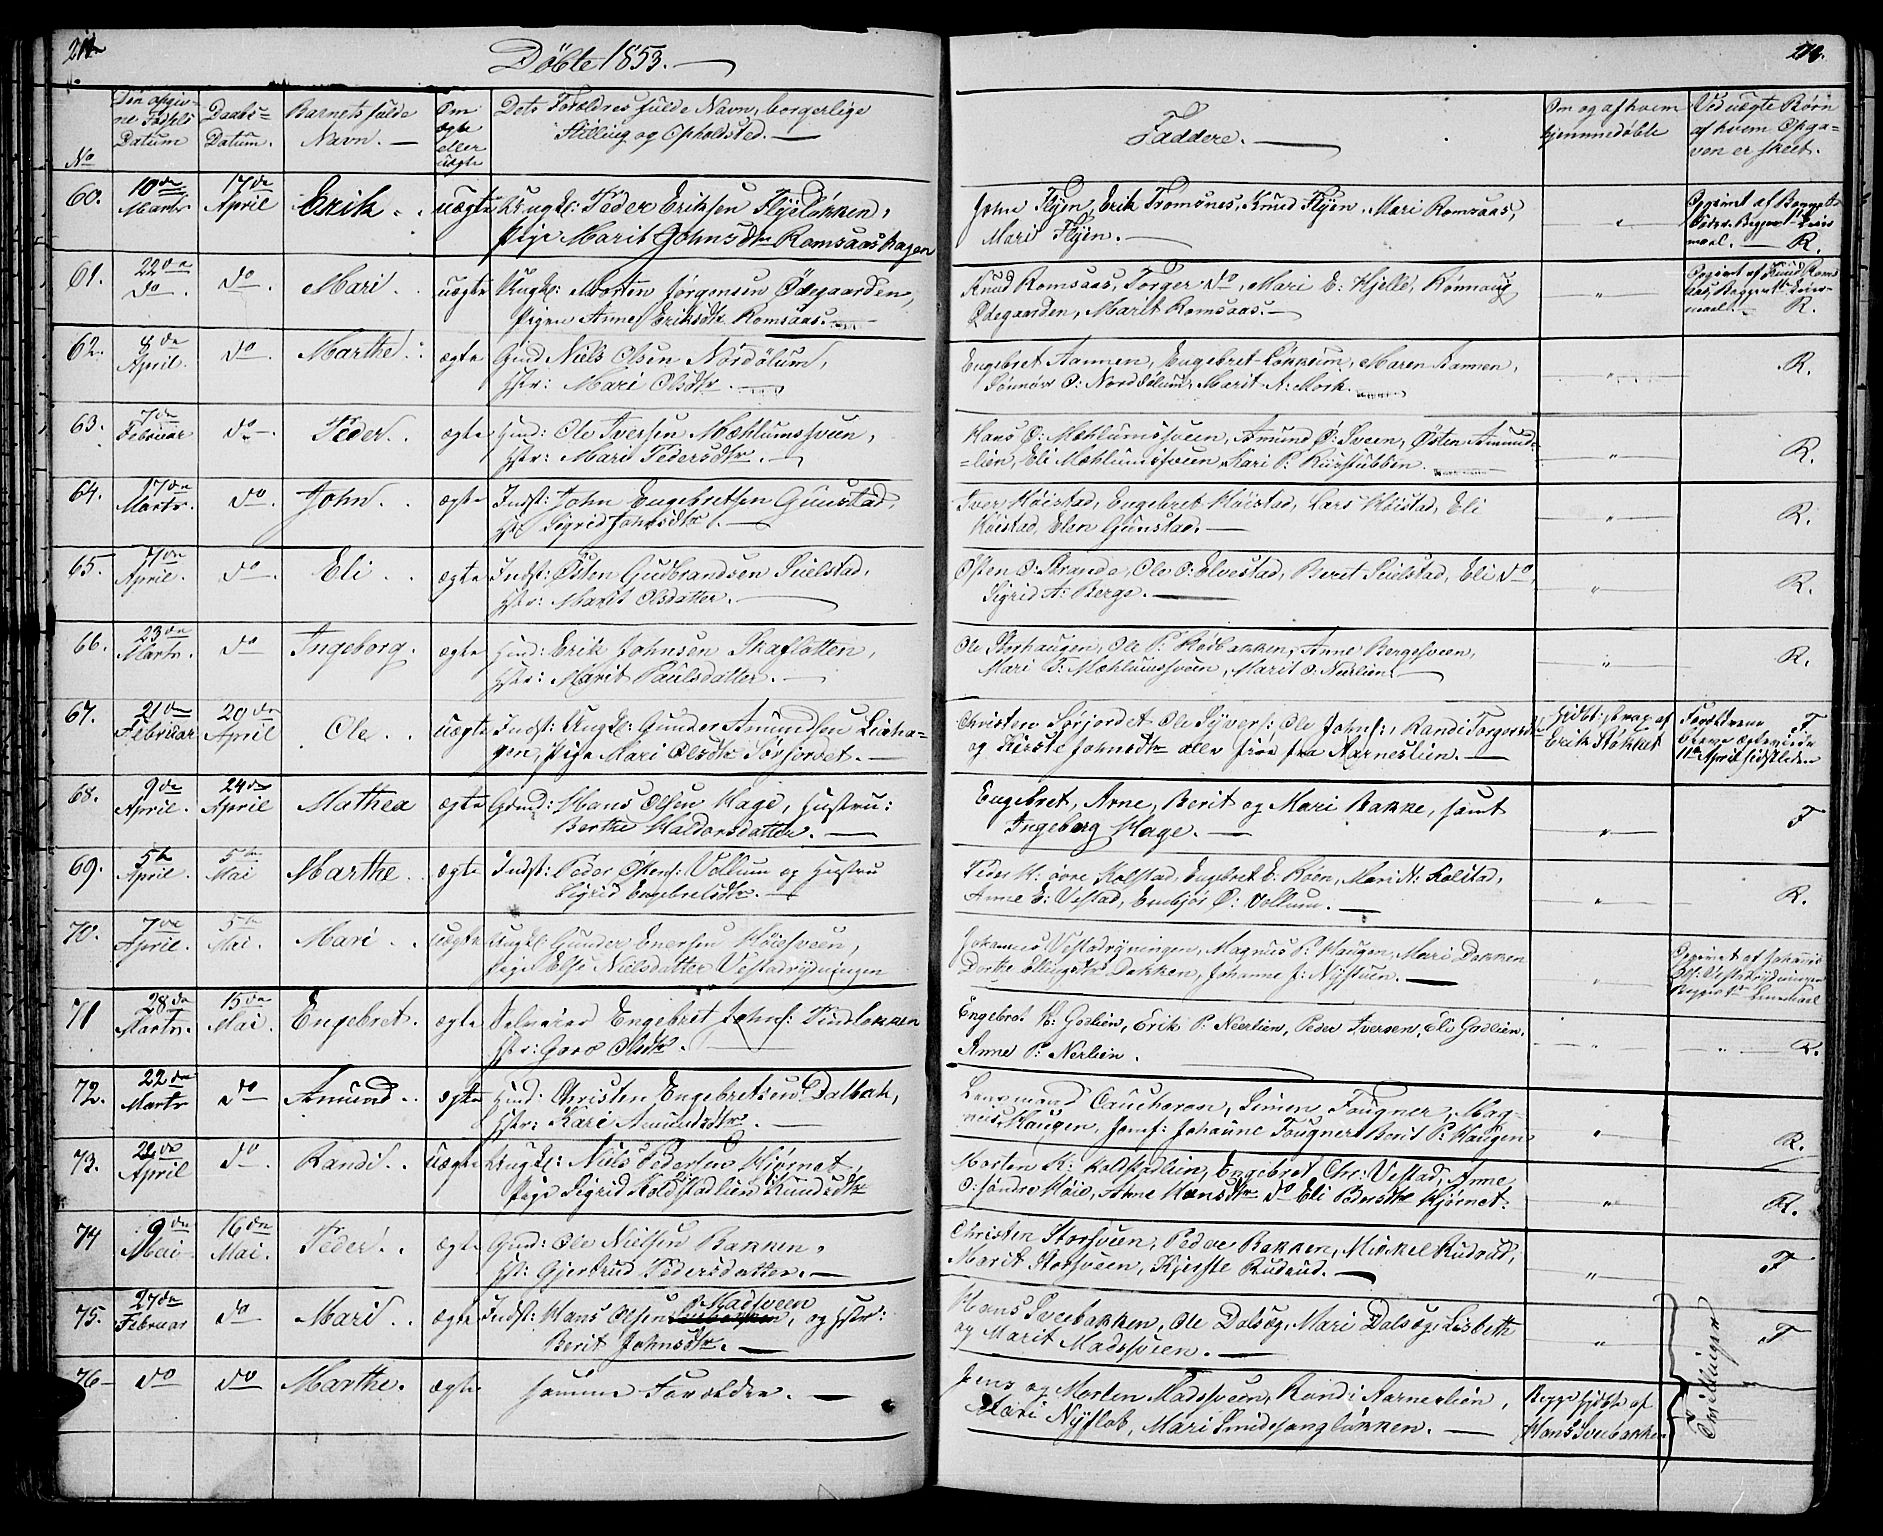 Döbte 1853.
No
Den opgivne Fødsels Datum
Daabs-Datum.
Barnets fulde Navn.
Om ægte eller uægte
Dets Forældres fulde Navn, borgerlige Stilling og Opholdsted.
Faddere.
Om og af hvem hjemmedöbte
Ved uægte Börn af hvem Opgaven er skeet.
60. 10de Marts 17de April Erik uægte Ungk: Peder Eriksen Flyeløkken,
Pige Marit Johnsdtr Romsaashagen
John Flyen, Erik Tromsnes, Knud Flyen, Mari Romsaas,
Mari Flyen. R.
61. 22de do do Mari uægte Ungk: Morten Jørgensen Ødegaarden,
Pigen Anne Eriksdtr Romsaas.
Knud Romsaas, Torger do, Mari E: Hjelle, Rönnoug
Ødegaarden, Marit Romsaas. R.
62. 8de April. do Marthe ægte Gmd Niels Olsen Nordölum,
Hstr: Mari Olsdtr.
Engebret Aannen, Engebret Løkkeim, Maren Aannen,
O: Nordölum, Marit A: Mork. R.
63. 7de Februar do Peder. ægte Hmd: Ole Iversen Mæhlumssveen,
Hstr: Mari Pedersdtr.
Hans O: Mæhlumssveen, Amund Ø: Sveen, Østen Amundlien, Eli Mæhlumssveen, Kari P: Kurstubben. R.
64. 17de Marts. do John. ægte Indst: John Engebretsen Gunstad,
Hst: Sigrid Johnsdtr.
Iver Höistad, Engebret Höistad, Lars Höistad, Eli
Höistad, Elen Gunstad. R.
65. 7de April. do Eli ægte Indst: Østen Gudbrandsen Sielstad,
Hstr: Marit Olsdatter.
Østen O: Strande, Ole O: Elvestad, Beret Sielstad, Eli do,
Sigrid A: Berge. R.
66. 23de Marts. do Ingeborg. ægte Hmd: Erik Johnsen Skaflotten,
Hstr: Marit Paulsdatter.
Ole Storhaugen, Ole P: Moebakken, Anne Bergesveen,
Mari T: Mæhlumssveen, Marit O: Neerlien. R.
67. 21de Februar 20de April Ole uægte Indst: Ungk: Gunder Amundsen Liehagen, Pige Mari Olsdtr Sörjordet.
Christen Sörjordet Ole Syvers:, Ole Johns:, Randi Torgersdtr
og Kirste Johnsdtr alle fra Aarneslien.
Erik Stokket
Forældrene
11te April sidstleden F
68. 9de April. 24de April Mathea ægte Gmd: Hans Olsen Hage, Hustru:
Berthe Haldorsdatter.
Engebret, Arne, Berit og Mari Bakke, samt
Ingeborg Hage. F
69. 5te April. 5te Mai Marthe. ægte Indst: Peder Østens: Vollum og Hustru
Sigrid Engebretsdtr.
Peder H: övre Kolstad, Engebret E: Röen, Mari N: Kolstad,
Anne E: Vestad, Embjör Ø: Vollum. R.
70. 7de April. 5te Mai. Mari uægte Ungk: Gunder Enersen Höiesveen,
Pige Else Nielsdatter Vestadrydningen
Johannes Vestadrydningen, Magnus P: Haugen, Mari Bakken
Dorthe Ellingsdtr Bakken, Johanne J: Nysveen.
Opgivet af Johannes
Ols: Vestadrydningen
71 28de Marts. 15de Mai Engebret. ægte Selveier Engebret Johns: Vindløkken
Hstr: Goro Olsdtr.
Engebret H: Godlien, Erik P: Neerlien, Peder Iversen, Eli Godlien,
Anne P: Nerlien. R.
72. 22de Marts do Amund. ægte Hmd: Christen Engebretsen Dalbak,
Hstr: Kari Amundsdtr.
Lensmand Caucheron, Simen Fougner, Magnus Haugen, Jomf: Johanne Fougner Berit P: Haugen R.
73. 22de April do Randi. uægte Ungk: Niels Pedersen Hjörnet,
Pige Sigrid Kolstadlien Knudsdtr
Morten K: Kolstadlien, Engebret Chr: Vestad, Anne
O: söndre Höie, Anne Hansdtr do Eli Pedersdtr Hjörnet. R.
74 9de Mai. 16de Mai. Peder ægte Gmd: Ole Nielsen Bakken,
Hst: Gjertrud Pedersdatter.
Christen Storsveen, Peder Bakken, Mikkel Rudsud,
Marit Storsveen, Kjerste Rudsud. F
75. 27de Februar do Mari. ægte Indst: Hans Olsen Madsveen, og Hstr:
Berit Johnsdtr.
Hans Sveebakken, Ole Dalseg, Mari Dalseg, Lisbeth
og Marit Madssveen. F
76 do do Marthe. ægte samme Forældre.
Jens og Morten Madssveen, Randi Aarneslien,
Mari Nyflob, Mari Smidesangløkken.
Begge af
Hans Sveebakken
Tvillinger